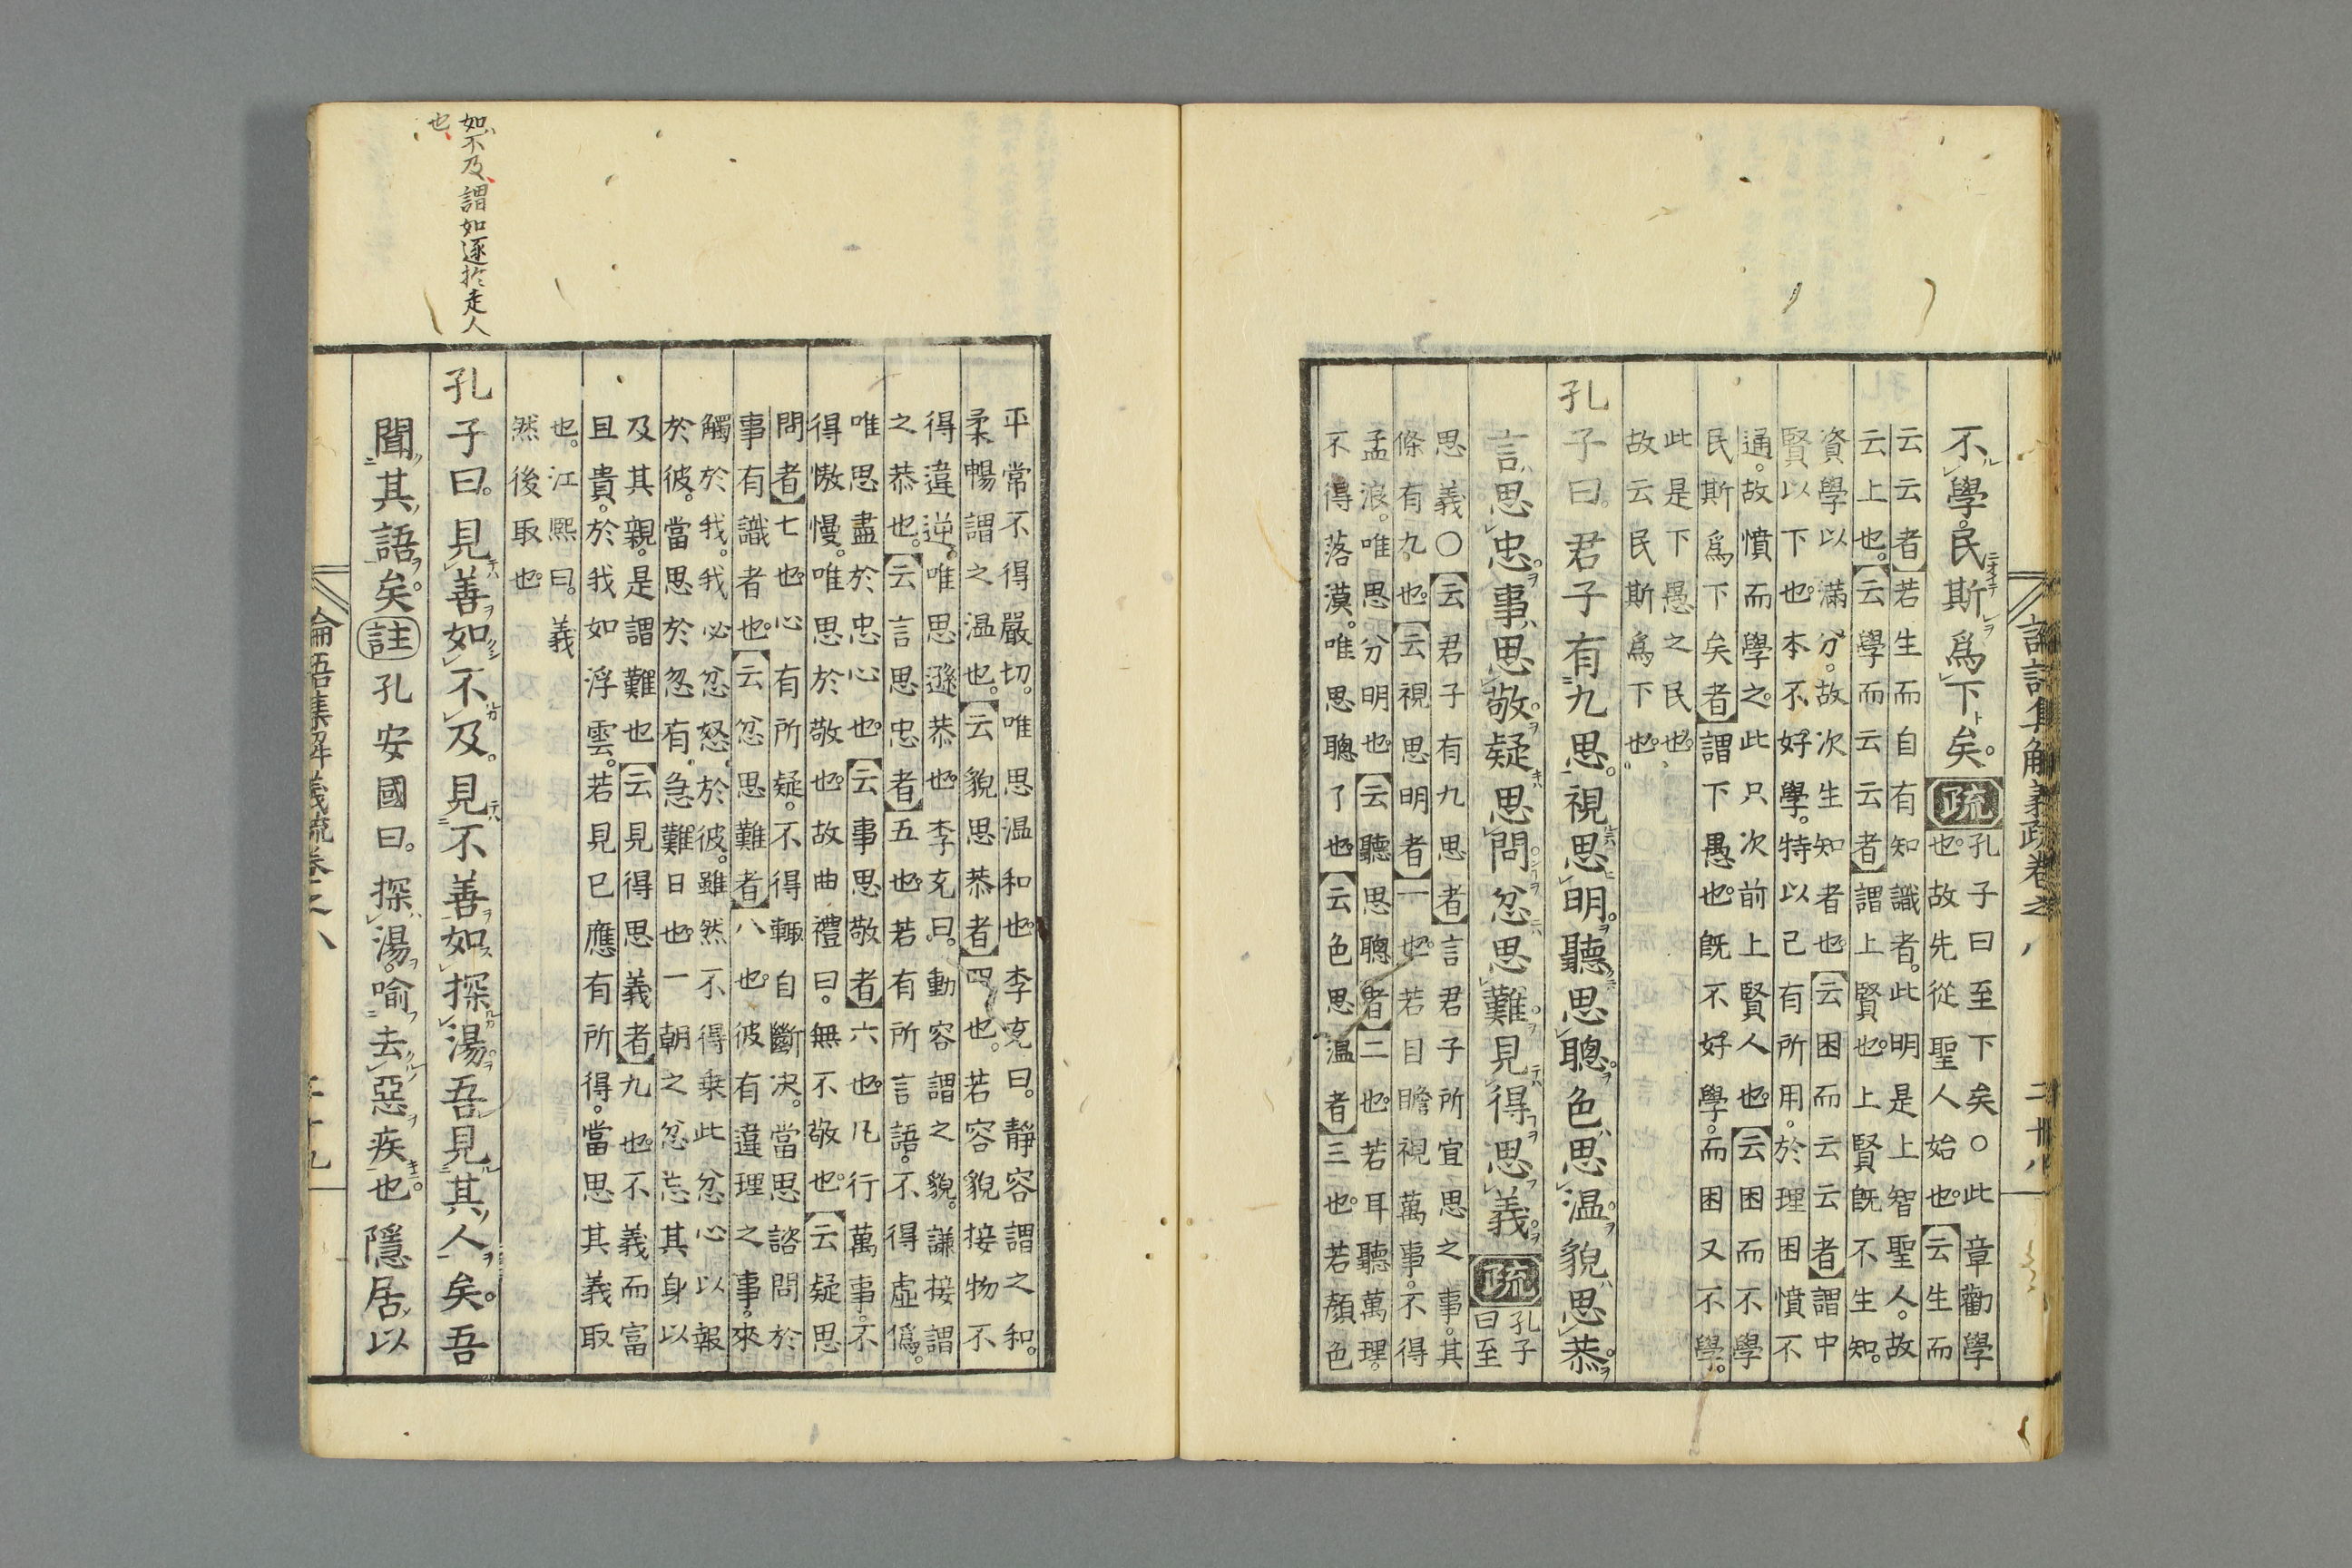 論語集解義疏卷之八
二卅八
不學。民斯爲下矣。疏
孔子曰至下矣○此章勸學
也。故先從聖人始也。云生而
云云者若生而自有知識者。此明是上智聖人。故
云上也。云學而云云者謂上賢也。上賢旣不生知。
資學以滿分。故次生知者也。云困而云云者謂中
賢以下也。本不好學。特以己有所用。於理困憤不
通。故憤而學之。此只次前上賢人也。云困而不學
民斯爲下矣者謂下愚也。旣不好學。而困又不學。
此是下愚之民也。
故云民斯爲下也。
孔子曰。君子有九思。視思明。聽思聰。色思温。貌思恭。
言思忠。事思敬。疑思問。忿思難。見得思義。疏
孔子
曰至
思義○云君子有九思者言君子所宜思之事。其
條有九也。云視思明者一也。若目瞻視萬事。不得
孟浪。唯思分明也。云聽思聰者二也。若耳聽萬理。
不得落漠。唯思聰了也。云色思温者三也。若顏色
平常不得嚴切。唯思温和也。李充曰。靜容謂之和。
柔暢謂之温也。云貌思恭者四也。若容貌接物不
得違逆。唯思遜恭也。李充曰。動容謂之貌。謙接謂
之恭也。云言思忠者五也。若有所言語。不得虛僞。
唯思盡於忠心也。云事思敬者六也。凡行萬事。不
得慠慢。唯思於敬也。故曲禮曰。無不敬也。云疑思
問者七也。心有所疑。不得輙自斷决。當思諮問於
事有識者也。云忿思難者八也。彼有違理之事。來
觸於我。我必忿怒於彼。雖然不得乗此忿心以報
於彼。當思於忽有急難日也。一朝之忿忘其身以
及其親。是謂難也。云見得思義者九也。不義而富
且貴。於我如浮雲。若見已應有所得。當思其義取
也。江熙曰。義
然後取也。
如不及謂如逐於走人
也
孔子曰。見善如不及。見不善如探湯。吾見其人矣。吾
聞其語矣。註孔安國曰。探湯。喻去惡疾也。隱居以
論語集解義疏卷之八